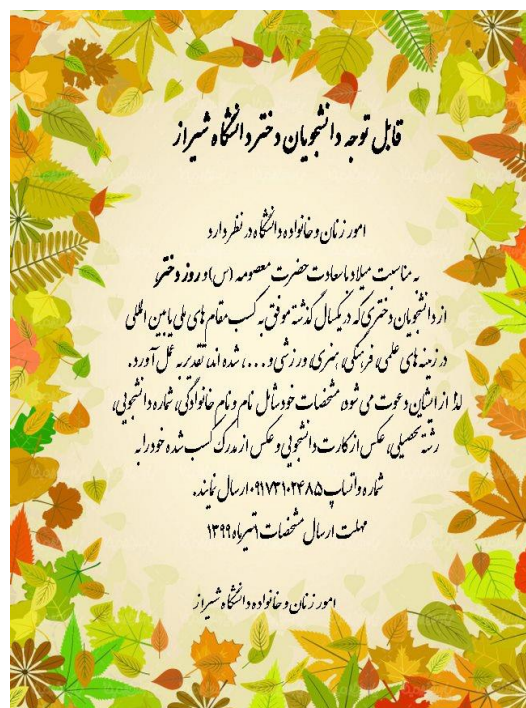 قابل توجه دانشجویان دختر دانشگاه شیراز
امور زنان و خانواده دانشگاه در نظر دارد
به مناسبت میلاد با سعادت حضرت معصومه (س) و روز دختر،
از دانشجویان دختری که در یکسال گذشته موفق به کسب مقام های ملی یا بین المللی
در زمینه های علمی، فرهنگی، هنری، ورزشی و . . . ، شده اند، تقدیر به عمل آورد.
لذا از ایشان دعوت می شود، مشخصات خود شامل نام و نام خانوادگی، شماره دانشجویی،
رشته تحصیلی، عکس از کارت دانشجویی و عکس از مدرک کسب شده خود را به
شماره واتساپ ۰۹۱۷۳۱۰۲۴۸۵ ارسال نمایند.
مهلت ارسال مشخصات ۱ تیرماه ۱۳۹۹
امور زنان و خانواده دانشگاه شیراز